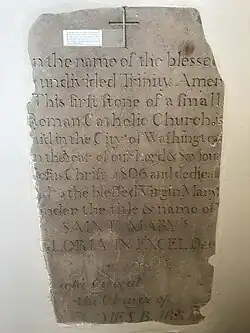 n the name of the blessed
undivided Trinity Amen
This first stone of a small
Roman Catholic Church is
aid in the City of Washington
n the year of our Lord & Saviour
esus Christ 1806 and dedicat
to the blessed Virgin Mary
under the title & name of
SAINT MARY'S
GLORIA IN EXCEL. Deo
the Care of